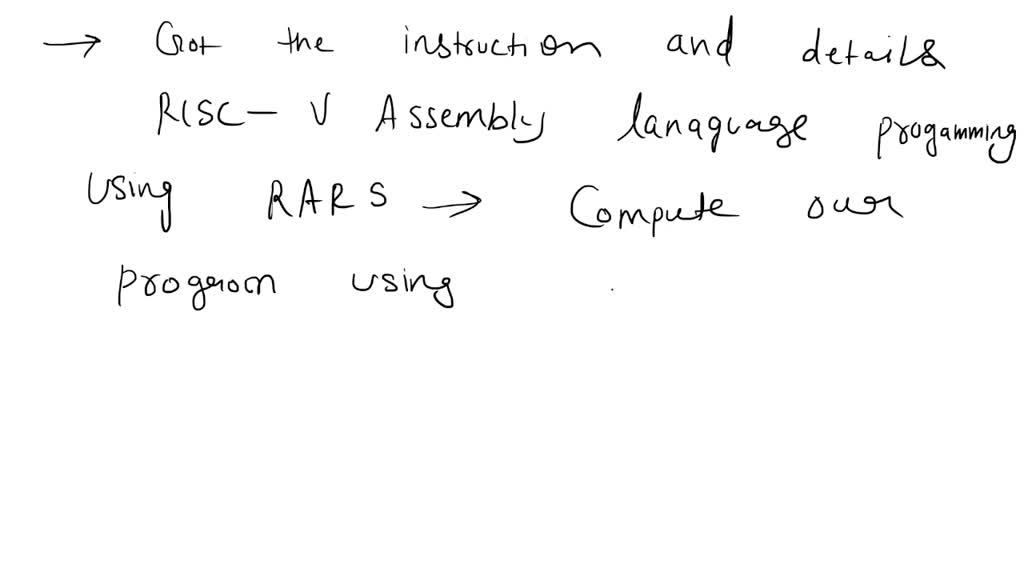 → Got the instruction and details
RISC-V Assembly lanaguage progamming
using RARS → Compute our
program using